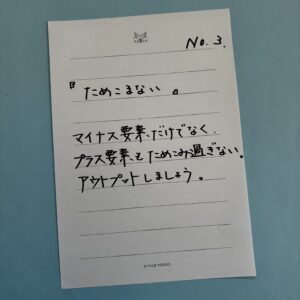 No. 3.
『ためこまない』
マイナス要素、だけでなく、
プラス要素、もためこみ過ぎない。
アウトプットしましょう。
KYUKYODO